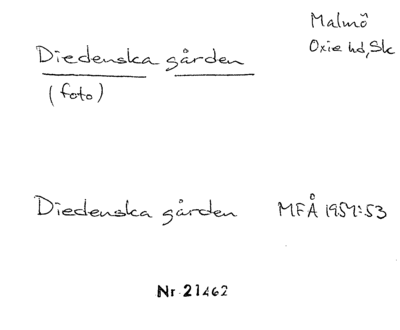 Malmö
Oxie hd, Sk
Diedenska gården
(foto)
Diedenska gården MFÅ 1957:53
Nr 21462